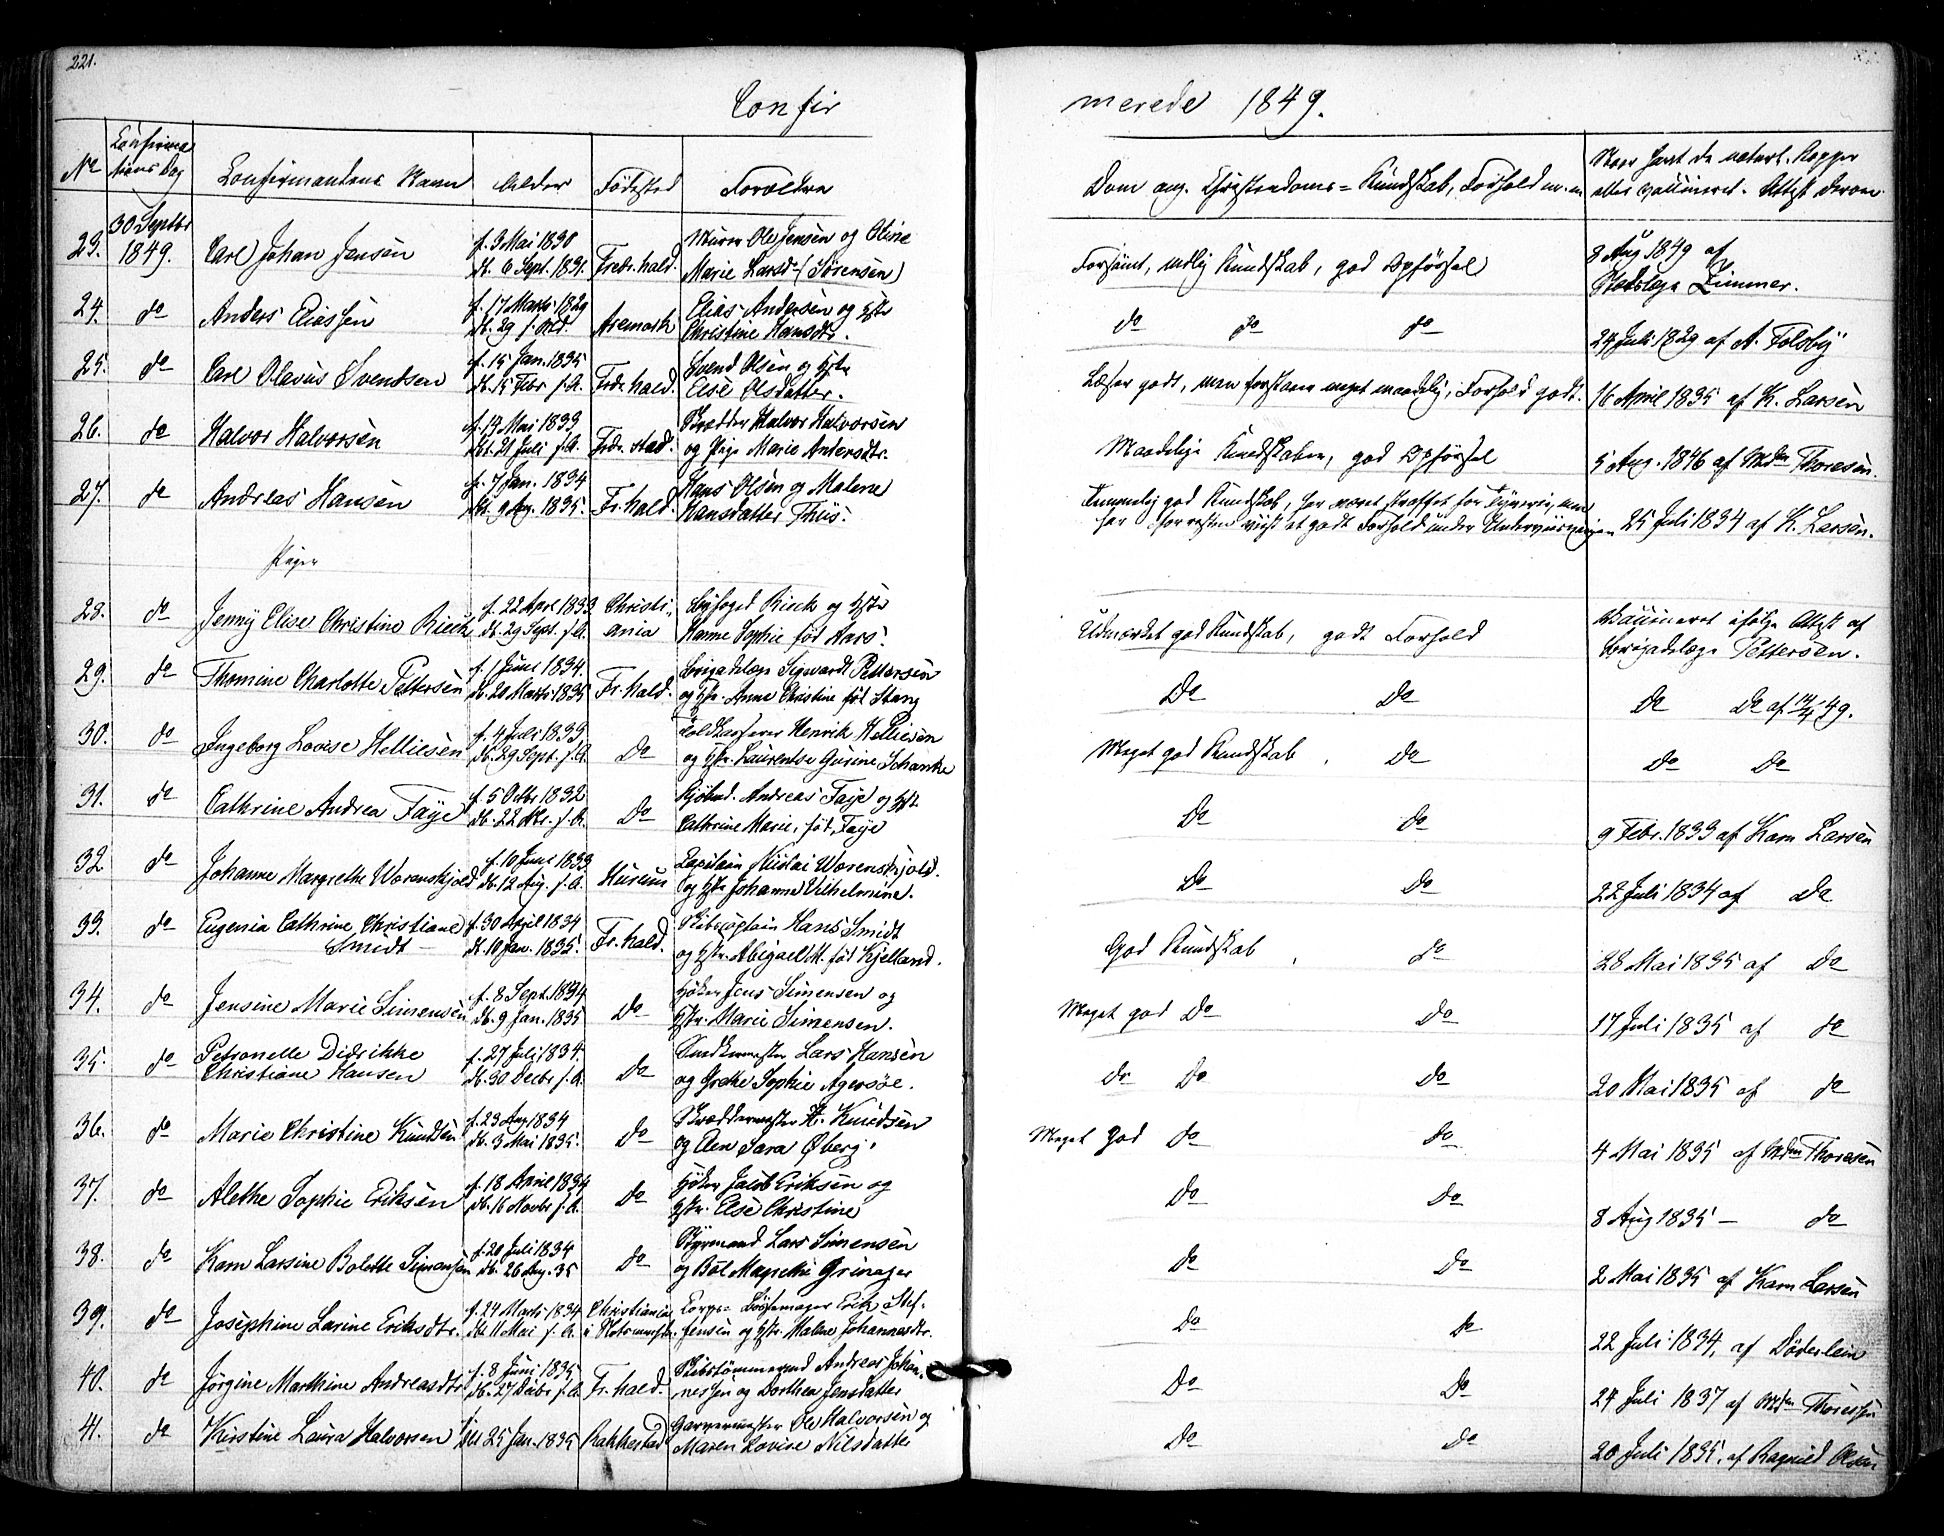 221.
Confir merede 1849.
No Confirmations Dag Confirmantens Navn Alder Fødested Forældre Dom ang. Christendoms-Kundskab, Forhold m.m. Naar havt de naturl. Kopper eller vaccineret. Attest derom
23. 30 Septbr 1849. Carl Johan Jensen f. 3 Mai 1830 Murer Ole Jensen og Oline
db. 6 Sept. 1831. Fredr.hald. Marie Larsd. (Sørensen) Forsømt, Kundskab, god Opførsel 8 Aug 1849 af
Zimmer.
24. do Anders Eliassen f. 17 Marts 1829 Aremark Elias Andersen og Hstr
db. 29 s. Md. Christine Hansdtr. do do do 24 Juli 1829 af A. Folsby
25. do Carl Olavus Svendsen f. 15 Jan. 1835 Svend Olsen og Hstr
db. 15 Febr s.A. Frdr.hald. Else Olsdatter. Læser godt, men forstaaer meget maadelig, Forhold godt. 16 April 1835 af K. Larsen
26. do Halvor Halvorsen f. 14 Mai 1833 Skrædder Halvor Halvorsen
db. 21 Juli s.A. Frdr.stad. og Pige Marie Andersdtr. Maadelige Kundskaber, god Opførsel 5 Aug. 1846 af Mdm Thoresen.
27. do Andreas Hansen f. 7 Jan. 1834 Hans Olsen og Malene
db. 9 Aug. 1835. Fr.hald. Hansdatter Thiis. Temmelig god Kundskab, har været straffet for Tyverie, men
har forresten viist et godt Forhold under Underviisningen 25 Juli 1834 af K. Larsen.
Piger
28. do Jenny Elise Christine Rieck f. 22 Apri 1833 Christi- Byfoged Rieck og Hstr
db. 29 Sept. s.A. ania Hanne Sophie født Udmærket god Kundskab, godt Forhold Vaccineret ifølge Attest af
Brigadelæge Pettersen.
29. do Thomine Charlotte Pettersen f. 1 Juni 1834. Brigadelæge Sigwardt Pettersen
db. 20 Marts 1835 Fr.hald. og Hstr. Anne Christine født Stang Do Do Do Do af 49.
30. do Ingeborg Lovise Helliesen f. 4 Juli 1833 Toldkasserer Henrik Helliesen
db. 29 Sept. s.A. Do og Hstr. Laurentse Gurine Schanke Meget god Kundskab, Do Do Do
31. do Cathrine Andrea Faye f. 5 Octbr 1832 Kjøbmd. Andreas Faye og Hstr
db. 22 s.A. Do Cathrine Marie, født Faye Do Do 9 Febr. 1833 af Karn Larsen
32. do Johanne Margrethe Worenskjold f. 10 Juni 1833 Capitain Nicolai Worenskjold.
db. 12 Aug. s.A. Hurum og Hstr Johanne Vilhelmine. Do Do 22 Juli 1834 af Do
33. do Eugenia Cathrine Christiane f. 30 April 1834 Skibscaptain Hans Smidt
Smidt db. 10 Jan. 1835. Fr.hald. og Hstr. Abigael M. født Kjelland. God Kundskab, do 28 Mai 1835 af Do
34. do Jensine Marie Simensen f. 8 Sept. 1834 Høker Jens Simensen og
db. 9 Jan. 1835 Do Hstr. Marie Simensen. Meget god Do Do 17 Juli 1835 af do
35. do Petronelle Didrikke f. 27 Juli 1834. Snedkermester Lars Hansen
Christiane Hansen db. 30 Decbr s.A. Do og Grethe Sophie Agersøe. Do Do Do 20 Mai 1835 af do
36. do Marie Christine Knudsen f. 23 Aug 1834 Skræddermester H. Knudsen
db. 3 Mai 1835. Do og Elen Sara Øberg. Meget god do do 4 Mai 1835 af Mdm Thoresen
37. do Alethe Sophie Eriksen f. 18 April 1834 Høker Jacob Eriksen og
db. 16 Novbr s.A. Do Hstr. Else Christine Do Do 8 Aug 1835 — do
38. do Karn Larsine Bolette Simonsen f. 20 Juli 1834 Styrmand Lars Simensen
db. 26 Aug. 35 Do og Bol Magrethe Grinager Do Do 2 Mai 1835 af Karn Larsen
39. do Josephine Larine Eriksdtr. f. 24 Marts 1834 Christiania Corps- Bøssemager Erik Stef-
db. 11 Mai s.A. i fensen og Hstr. Malene Johannesdtr. Do Do 22 Juli 1834, af Døderlein
40. do Jørgine Marthine Andreasdtr. f. 8 Juni 1835 Skibstømmermd Andreas Johan-
db. 27 Decbr s.A. Fr.hald. nessen og Dorthea Jensdatter Do Do 24 Juli 1837 af Mdm Thoresen
41. do Kirstine Laura Halvorsen 25 Jan. 1835 Rakkestad Garvermester Ole Halvorsen og
Maren Lovise Nilsdatter Do Do 20 Juli 1835, af Ragnild Olsen